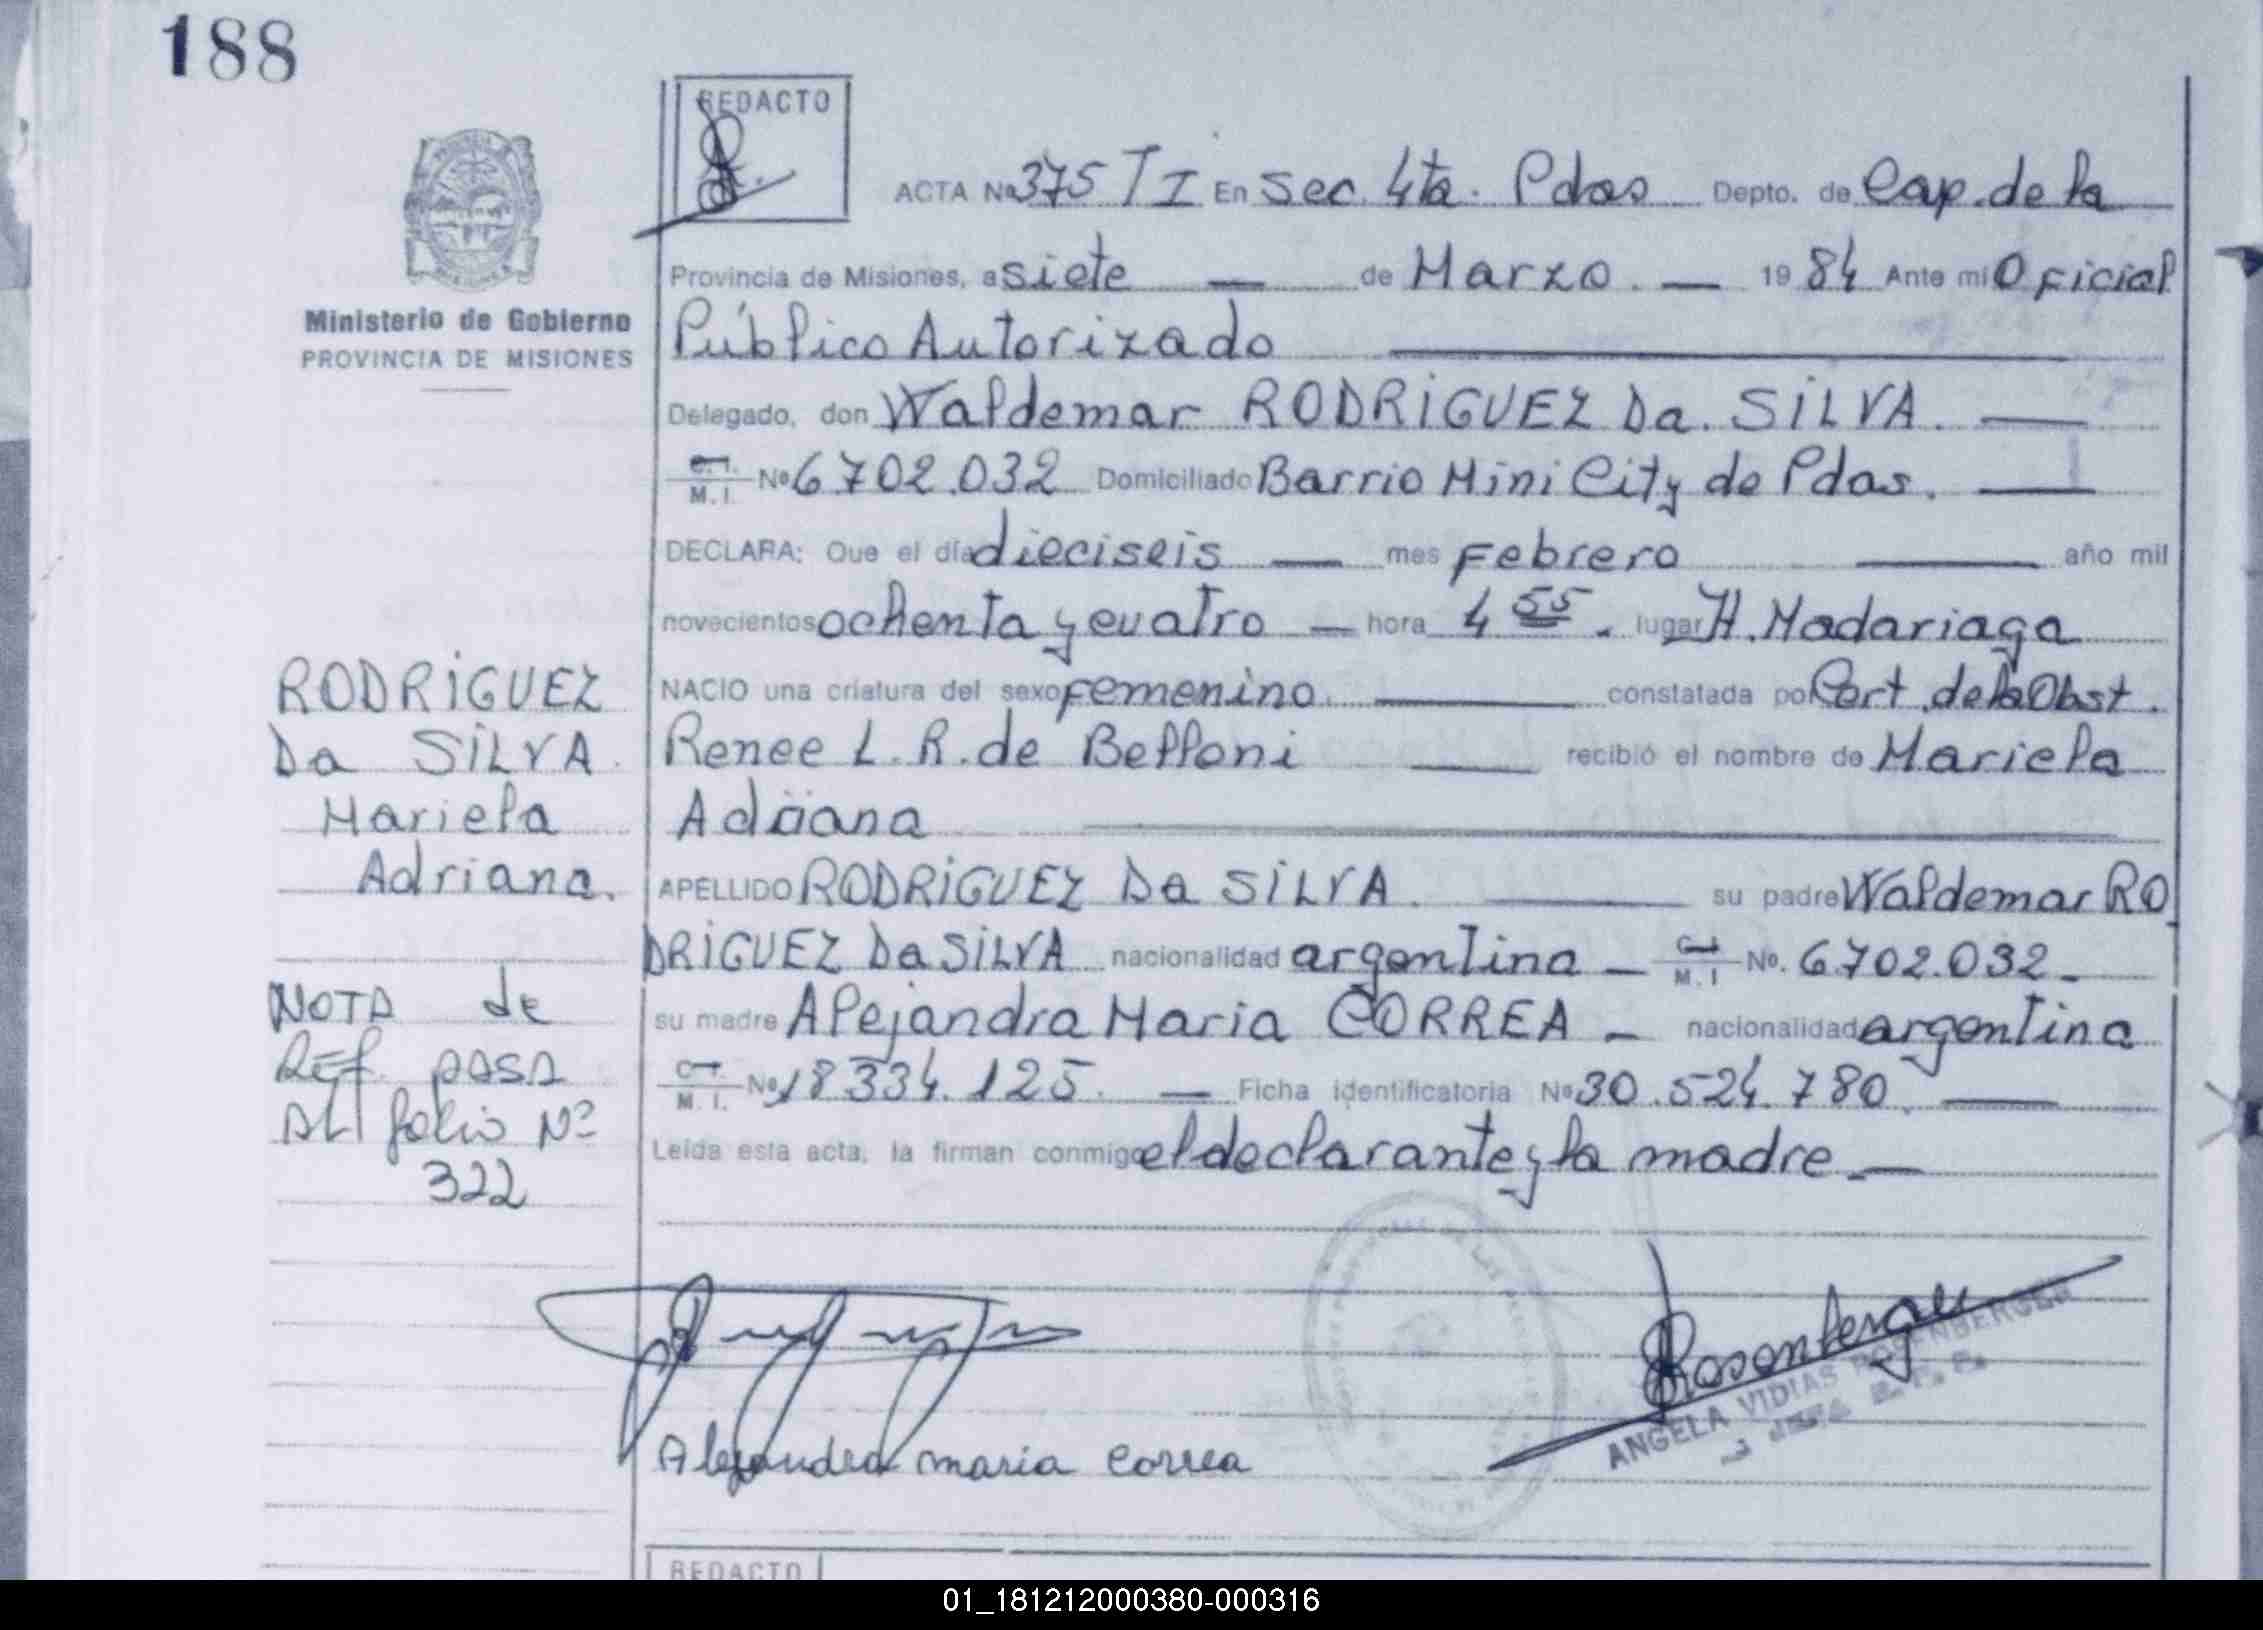 188
REDACTO
ACTA Nº 375 T I En Sec. 4ta. Pdas Depto. de Cap. de la
Provincia de Misiones, a siete — de Marzo. — 19 84 Ante mi Oficial
Público Autorizado
Delegado, don Waldemar RODRIGUEZ Da. SILVA. —
C.I. M.I. Nº 6702.032 Domiciliado Barrio Mini City de Pdas. —
DECLARA: Que el día dieciseis — mes Febrero — año mil
novecientos ochenta y cuatro — hora 4 55. lugar H. Madariaga
NACIO una criatura del sexo femenino. — constatada por Cert. de la Obst.
Renee L. R. de Belloni — recibió el nombre de Mariela
Adriana
APELLIDO RODRIGUEZ Da SILVA. — su padre Waldemar RO
DRIGUEZ Da SILVA nacionalidad argentina — C.I. M.I Nº. 6.702.032._
su madre Alejandra Maria CORREA — nacionalidad argentina
C.I. M.I. Nº 18334.125. — Ficha identificatoria Nº 30.524.780. —
Leída esta acta, la firman conmigo el declarante y la madre._
Ministerio de Gobierno
PROVINCIA DE MISIONES
RODRIGUEZ
Da SILVA.
Mariela
Adriana.
NOTA de
REF. PASA
AL folio Nº
322
Alejandra maria correa
Rosenberger
ANGELA VIDIAS ROSENBERGER
REDACTO
01_181212000380-000316